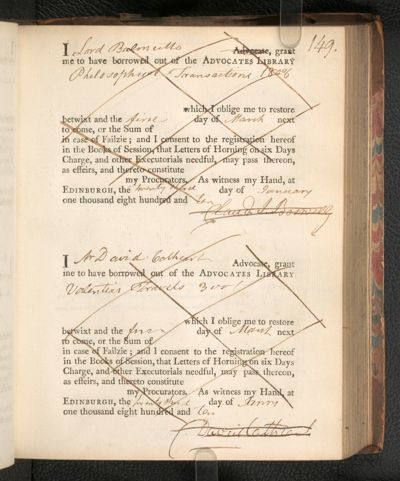 149.
I Lord Balmuto Advocate, grant
me to have borrowed out of the ADVOCATES LIBRARY
Philosophical Transactions 1808
which I oblige me to restore
betwixt and the first day of March next
to come, or the Sum of
in case of Failzie; and I consent to the registration hereof
in the Books of Session, that Letters of Horning on six Days
Charge, and other Executorials needful, may pass thereon,
as effeirs, and thereto constitute
my Procurators. As witness my Hand, at
EDINBURGH, the twenty third day of January
one thousand eight hundred and ten
I Mr David Cathcart Advocate, grant
me to have borrowed out of the ADVOCATES LIBRARY
Valentias Travels 3 vol
which I oblige me to restore
betwixt and the first day of March next
to come, or the Sum of
in case of Failzie; and I consent to the registration hereof
in the Books of Session, that Letters of Horning on six Days
Charge, and other Executorials needful, may pass thereon,
as effeirs, and thereto constitute
my Procurators. As witness my Hand, at
EDINBURGH, the twenty third day of
one thousand eight hundred and ten
David Cathcart